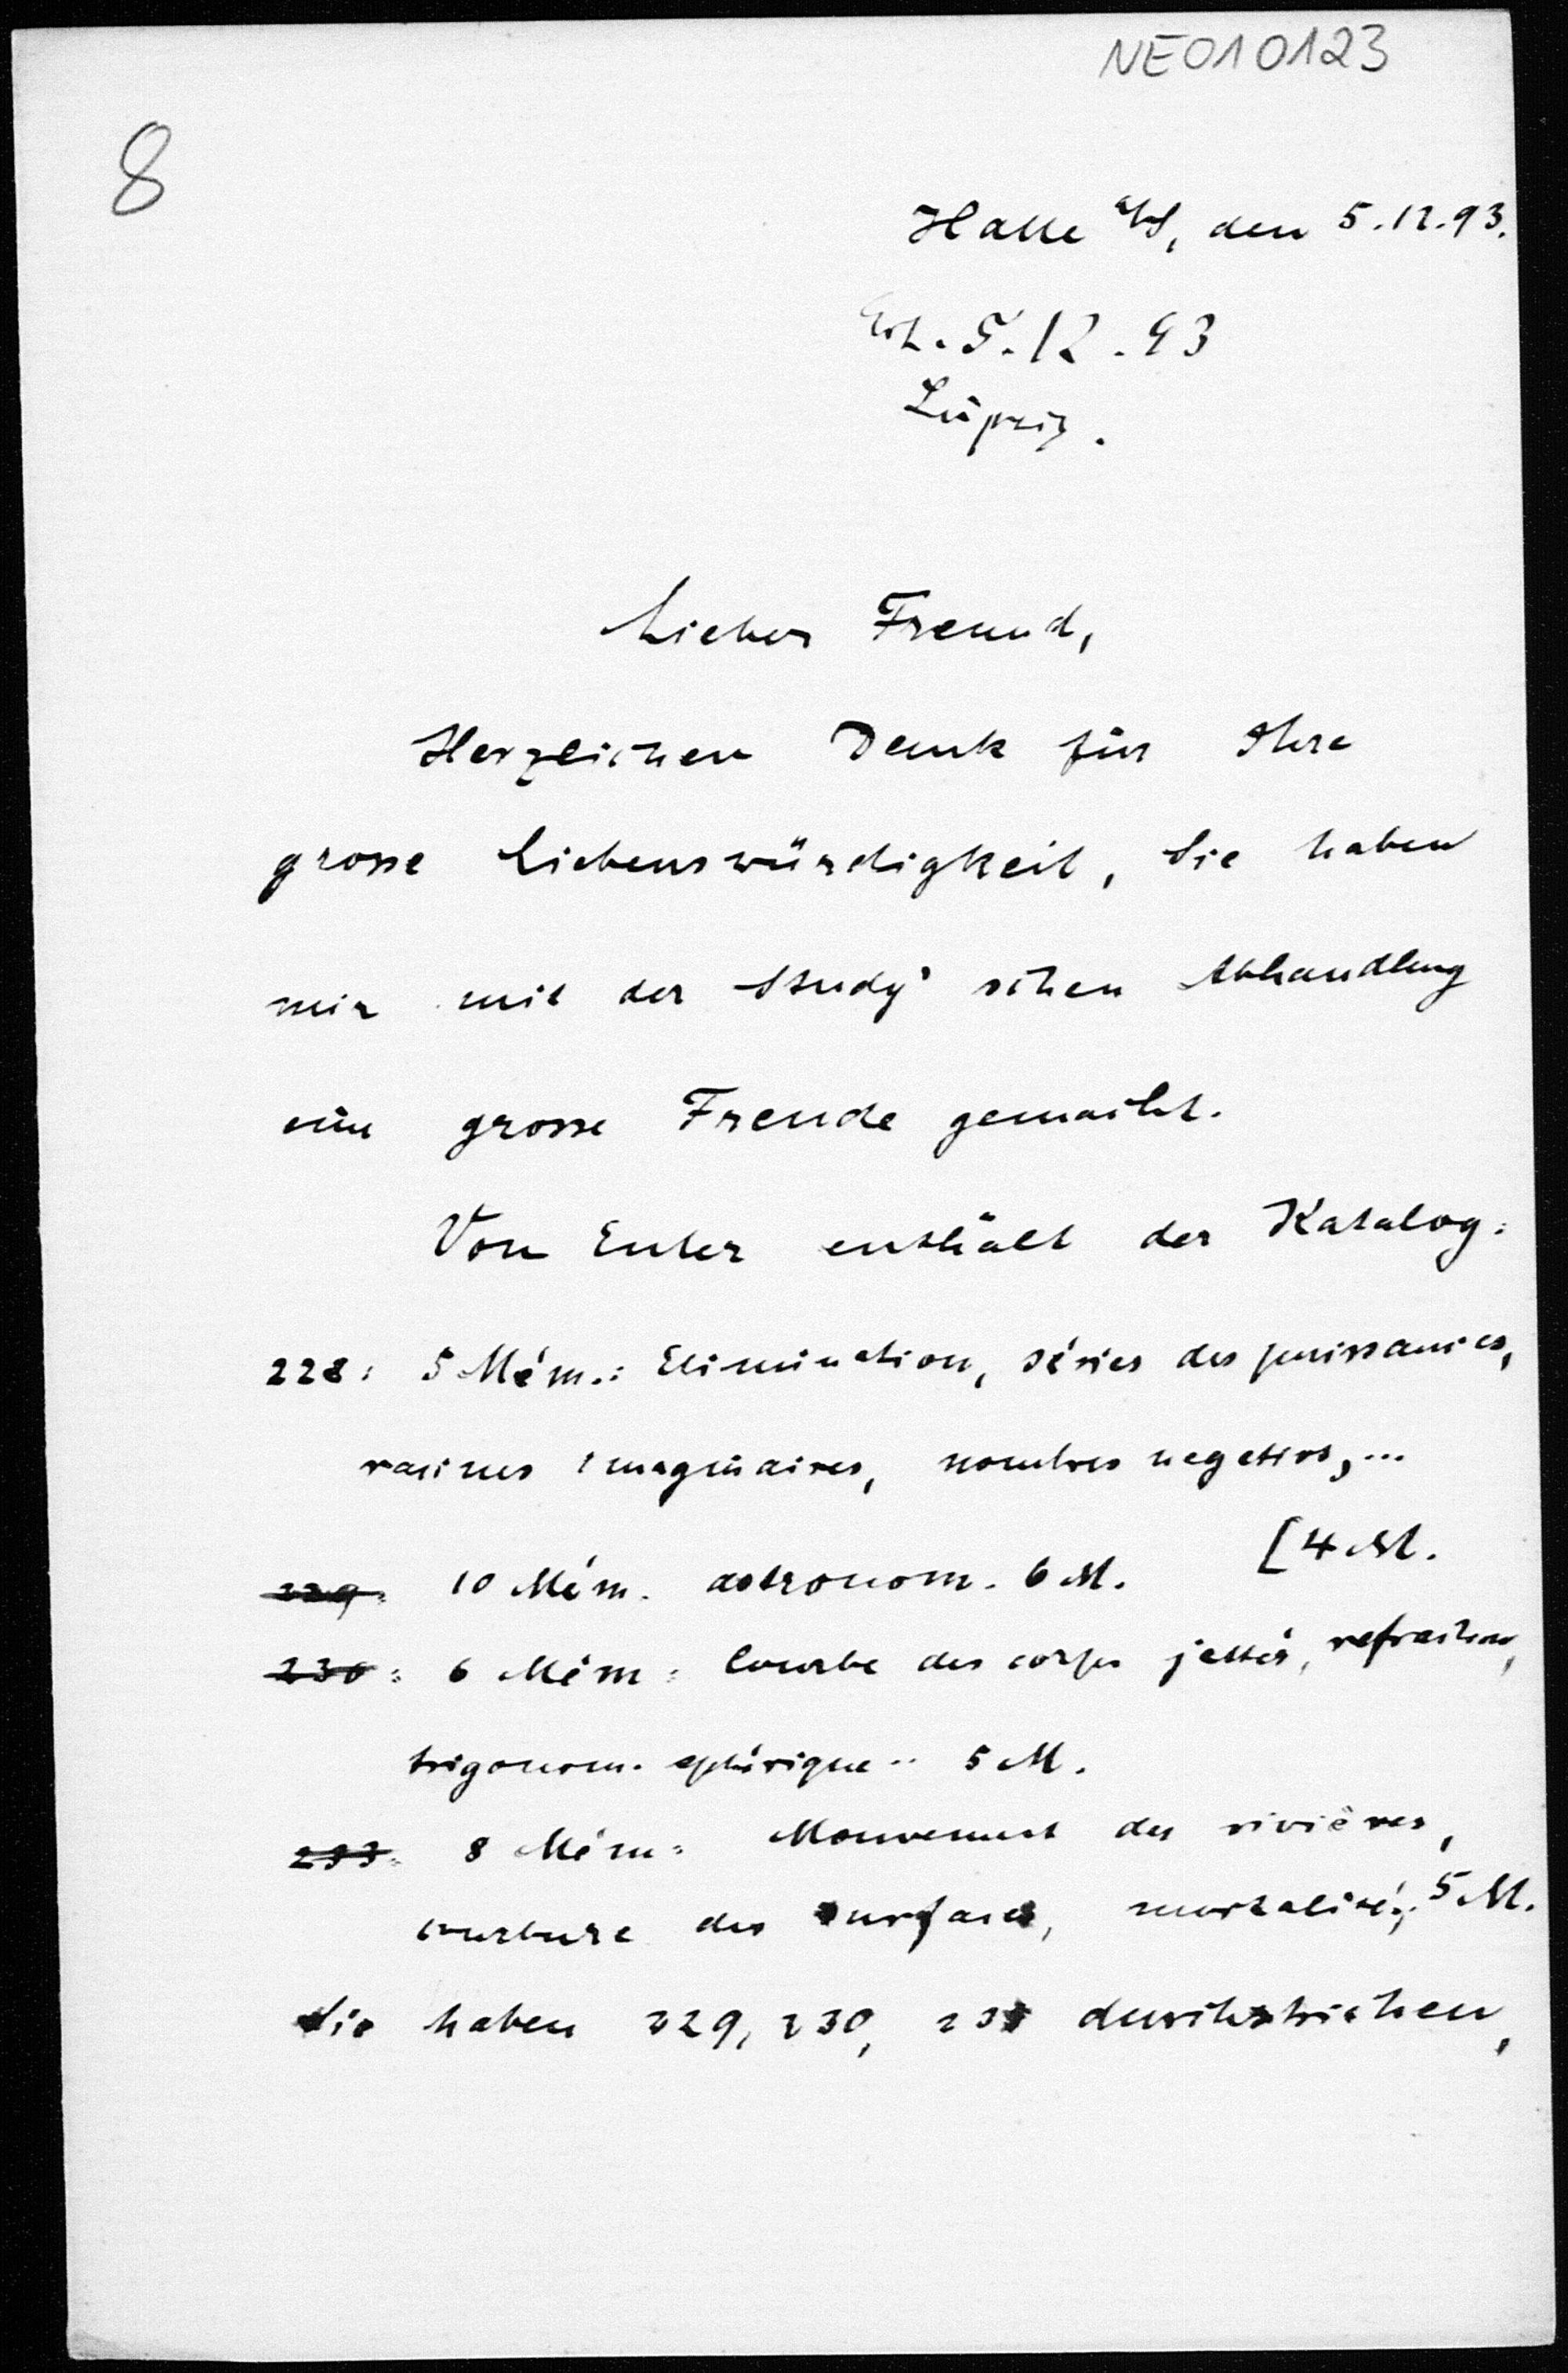 NE010123
8
Halle a/S, den 5.12.93.
Erh. 5.12.93
Leipzig.
Lieber Freund,
Herzlichen Dank für Ihre
grosse Liebenswürdigkeit, Sie haben
mir mit der Study'schen Abhandlung
eine grosse Freude gemacht.
Von Euler enthält der Katalog:
228: 5 Mém.: Elimination, séries des puissances,
racines imaginaires, nombres negatifs,...
[4 M.
229: 10 Mém. astronom. 6 M.
230: 6 Mém: Courbe des corps jettés, refraction,
trigonom. sphérique.. 5 M.
233: 8 Mém: Mouvement des rivières,
courbure des surfaces, mortalité,. 5 M.
Sie haben 229, 230, 233 durchstrichen,